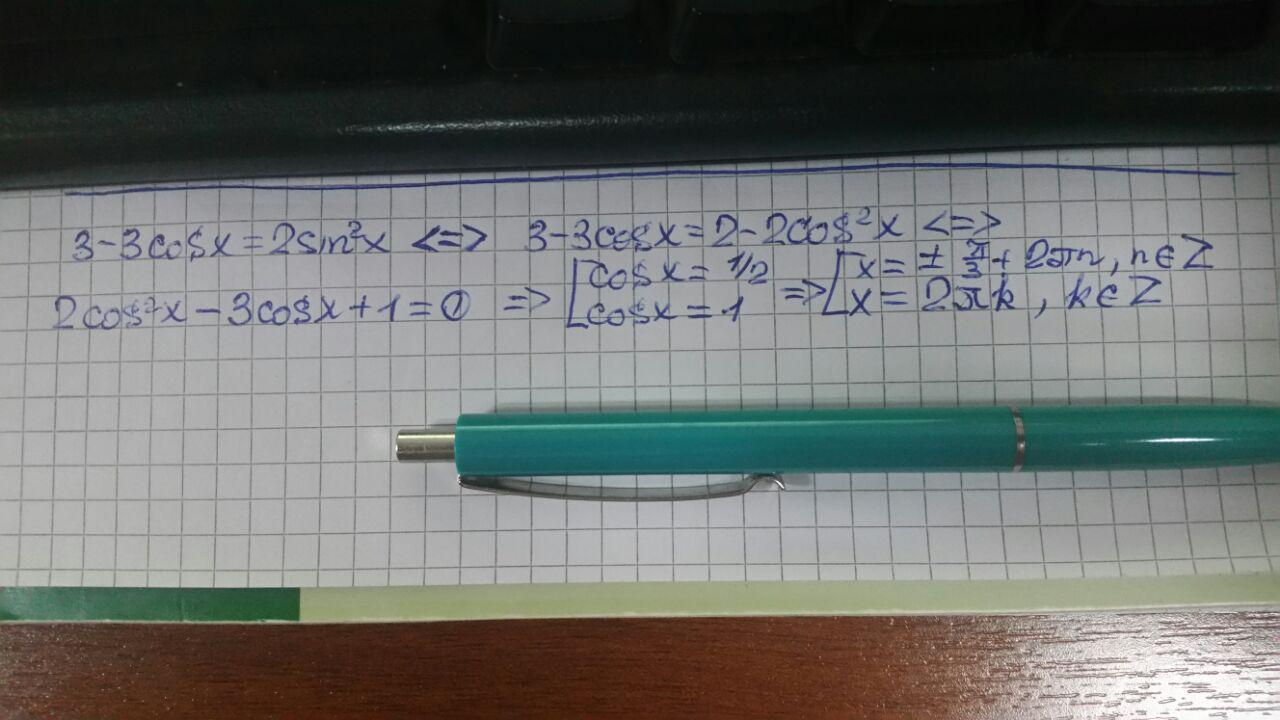 3-3cosx=2sin²x <=> 3-3cosx=2-2cos²x <=>
2cos²x-3cosx+1=0 => [cosx=1/2 cosx=1 => [x=±π/3+2πn, n∈Z x=2πk, k∈Z